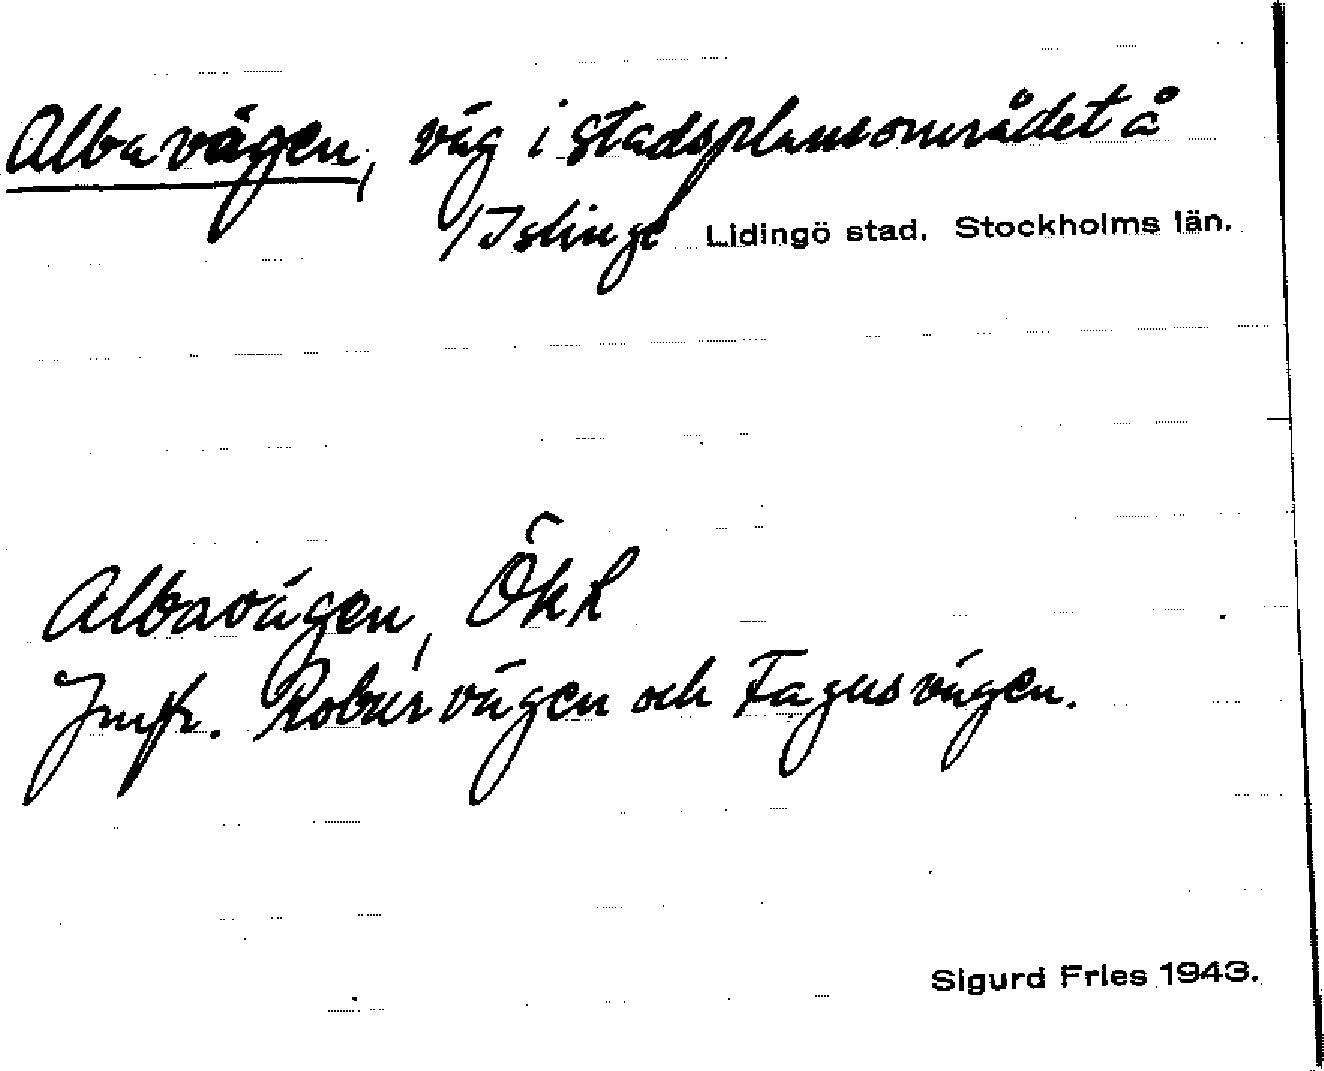 Albavägen, väg i stadsplansområdet å
/Islinge Lidingö stad. Stockholms län.
Albavägen, ÖkR
Jmfr. Roburvägen och Fagusvägen.
Sigurd Fries 1943.